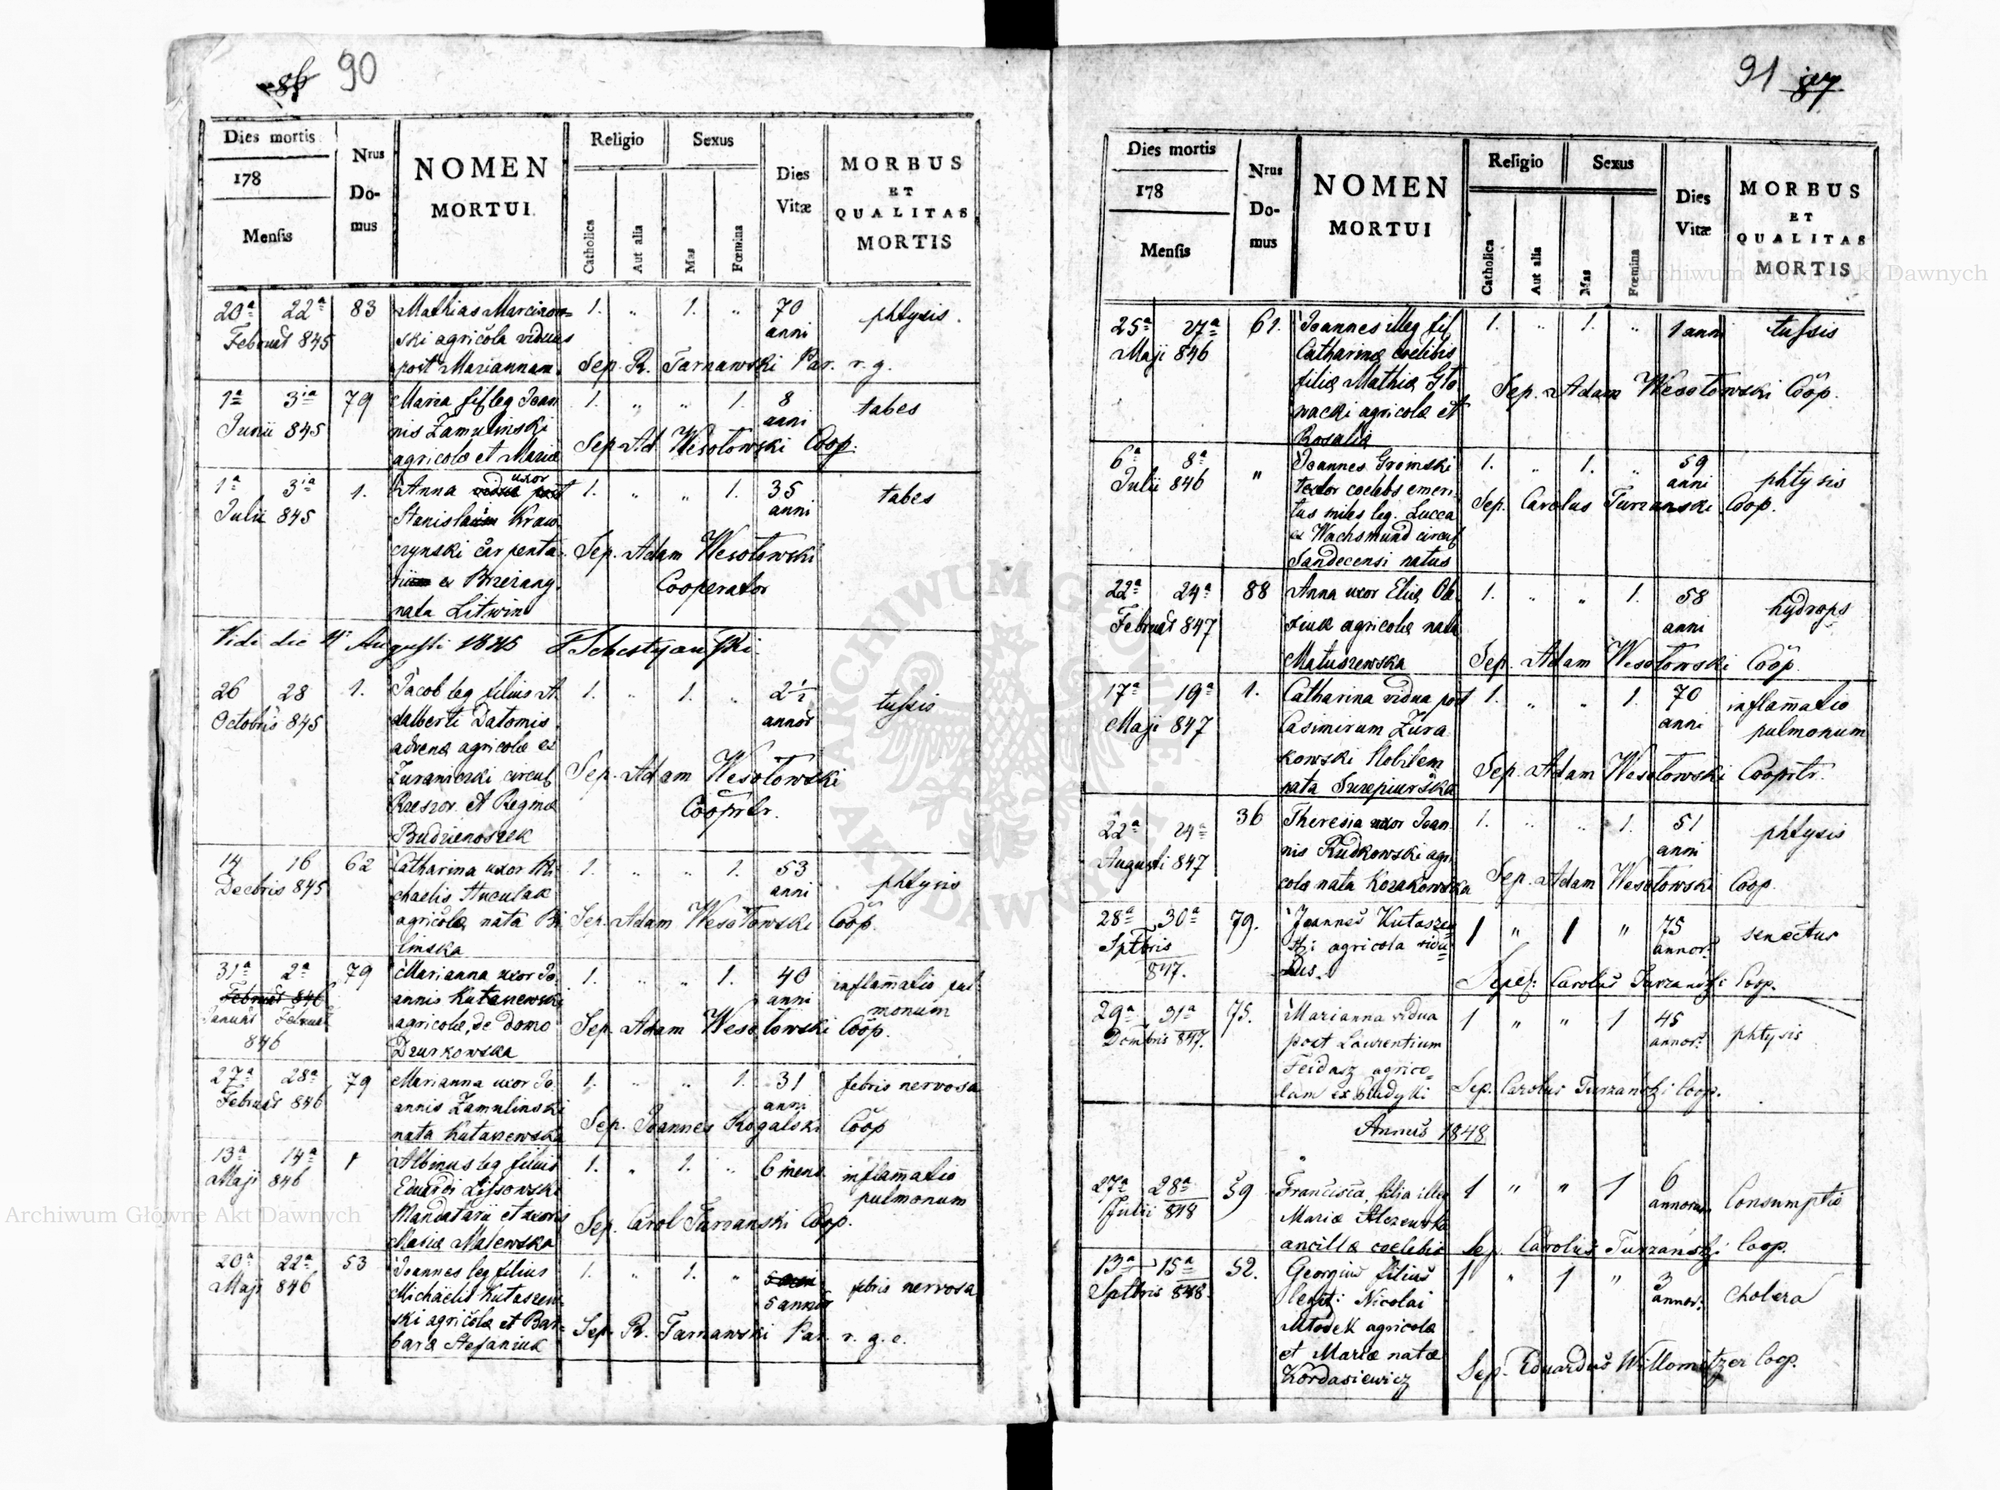 90
Dies mortis
178
Mensis
Nrus
Do-
mus
NOMEN
MORTUI
Religio
Sexus
Catholica
Aut alia
Mas
Fœmina
Dies
Vitæ
MORBUS
ET
QUALITAS
MORTIS
20ª 22ª 83 Mathias Marcinow= 1. „ 1. „ 70 phtysis.
Februar 845 ski agricola viduus anni
post Mariannam. Sep. R. Tarnawski Par. r. g.
1ª 3ia 79 Maria fil leg Joan 1. „ „ 1. 8 tabes
Junii 845 nis Zamulinski anni
agricolæ et Mariæ Sep. Ad Wesołowski Coop.
1ª 3ia 1. Anna uxor 1. „ „ 1. 35 tabes
Julii 845 Stanislai Kraw anni
czynski carpenta Sep. Adam Wesołowski
rii ex Brzezany. Cooperator
nata Litwin
Vidi die Augusti 1845
26 28 1. Jacob leg filius A 1. „ 1. „ 2½ tussis
Octobris 845 dalberti Datomis annor
advenæ agricolæ ex
Zuraniczki circul Sep. Adam Wesołowski
Rzeszov. et Reginæ Cooprtr.
Budzienoszek
14 16 62 Catharina uxor Mi 1. „ „ 1. 53 phtysis
Decbris 845 chaelis Huculak anni
agricolæ, nata Bi Sep. Adam Wesołowski Coop.
linska
31ª 2ª 79 Marianna uxor Jo 1. „ „ 1. 40 inflamatio pul
Februar 846 annis Kutaszewski anni monum
Januar Februar agricolæ, de domo Sep. Adam Wesołowski Coop.
846 Dzurkowska
27ª 28ª 79 Marianna uxor Jo 1. „ „ 1. 31 febris nervosa
Februar 846 annis Zamulinski anni
nata Kutaszewska Sep. Joannes Rogalski Coop
13ª 14ª 1 Albinus leg filius 1. „ 1. „ 6 mens. inflamatio
Maji 846 Eduardi Lissowski pulmonum
Mandatarii et uxoris Sep. Carol Turzanski Coop.
Mariæ Malewska
20ª 22ª 53 Joannes leg filius 1. „ 1. „ febris nervosa
Maji 846 Michaelis Kutaszew= 5 annor
ski agricolæ et Bar= Sep. R. Tarnawski Par. r. g. c.
baræ Stefaniuk
91
Dies mortis
178
Mensis
Nrus
Do-
mus
NOMEN
MORTUI
Religio
Sexus
Catholica
Aut alia
Mas
Fœmina
Dies
Vitæ
MORBUS
ET
QUALITAS
MORTIS
25ª 27ª 61. Joannes illeg fil 1. „ 1. „ 1 anni tussis
Maji 846 Catharinæ coelibis
filiæ Mathiæ Gło Sep. Adam Wesołowski Coop.
wacki agricolæ et
Rosalia
6ª 8ª „ Joannes Gromski 1. „ 1. „ 59 phtysis
Julii 846 textor coelebs emeri anni
tus miles leg. Lucca Sep. Carolus Turzanski Coop.
ex Wachsmund circul
Sandecensi natus
22ª 24ª 88 Anna uxor Eliæ Ole 1. „ „ 1. 58 hydrops
Februar 847 siuk agricolæ nata anni
Matuszewska Sep. Adam Wesołowski Coop.
17ª 19ª 1. Catharina vidua post 1. „ „ 1. 70 inflamatio
Maji 847 Casimirum Zura anni pulmonum
kowski Nobilem Sep. Adam Wesołowski Cooprtr.
nata
22ª 24ª 36 Theresia uxor Joan 1. „ „ 1. 51 phtysis
Augusti 847 nis Rudkowski agri anni
colæ nata Kozakowska Sep. Adam Wesołowski Coop.
28ª 30ª 79. Joannes Kutaszew= 1 „ 1 „ 75 senectus
Septbris ski agricola vidu= annor.
847. us. Sepel: Carolus Turzanski Coop.
29ª 31ª 75. Marianna vidua 1 „ „ 1 45 phtysis
847. post Laurentium annor.
Feidasz agrico=
lam ex Sep. Carolus Turzanski Coop.
Annus 1848
27ª 28ª 59 Francisca, filia illeg 1 „ „ 1 6 Consumptio
Julii 848 Mariæ annorum
ancillæ coelebis Sep. Carolus Turzanski Coop.
13ª 15ª 52. Georgius filius 1 „ 1 „ 3 Cholera
Septbris 848. legit: Nicolai annor.
Młodek agricolæ
et Mariæ natæ Sep. Eduardus Willomitzer Coop.
Kordasiewicz
Archiwum Główne Akt Dawnych
Archiwum Główne Akt Dawnych
ARCHIWUM GŁÓWNE AKT DAWNYCH